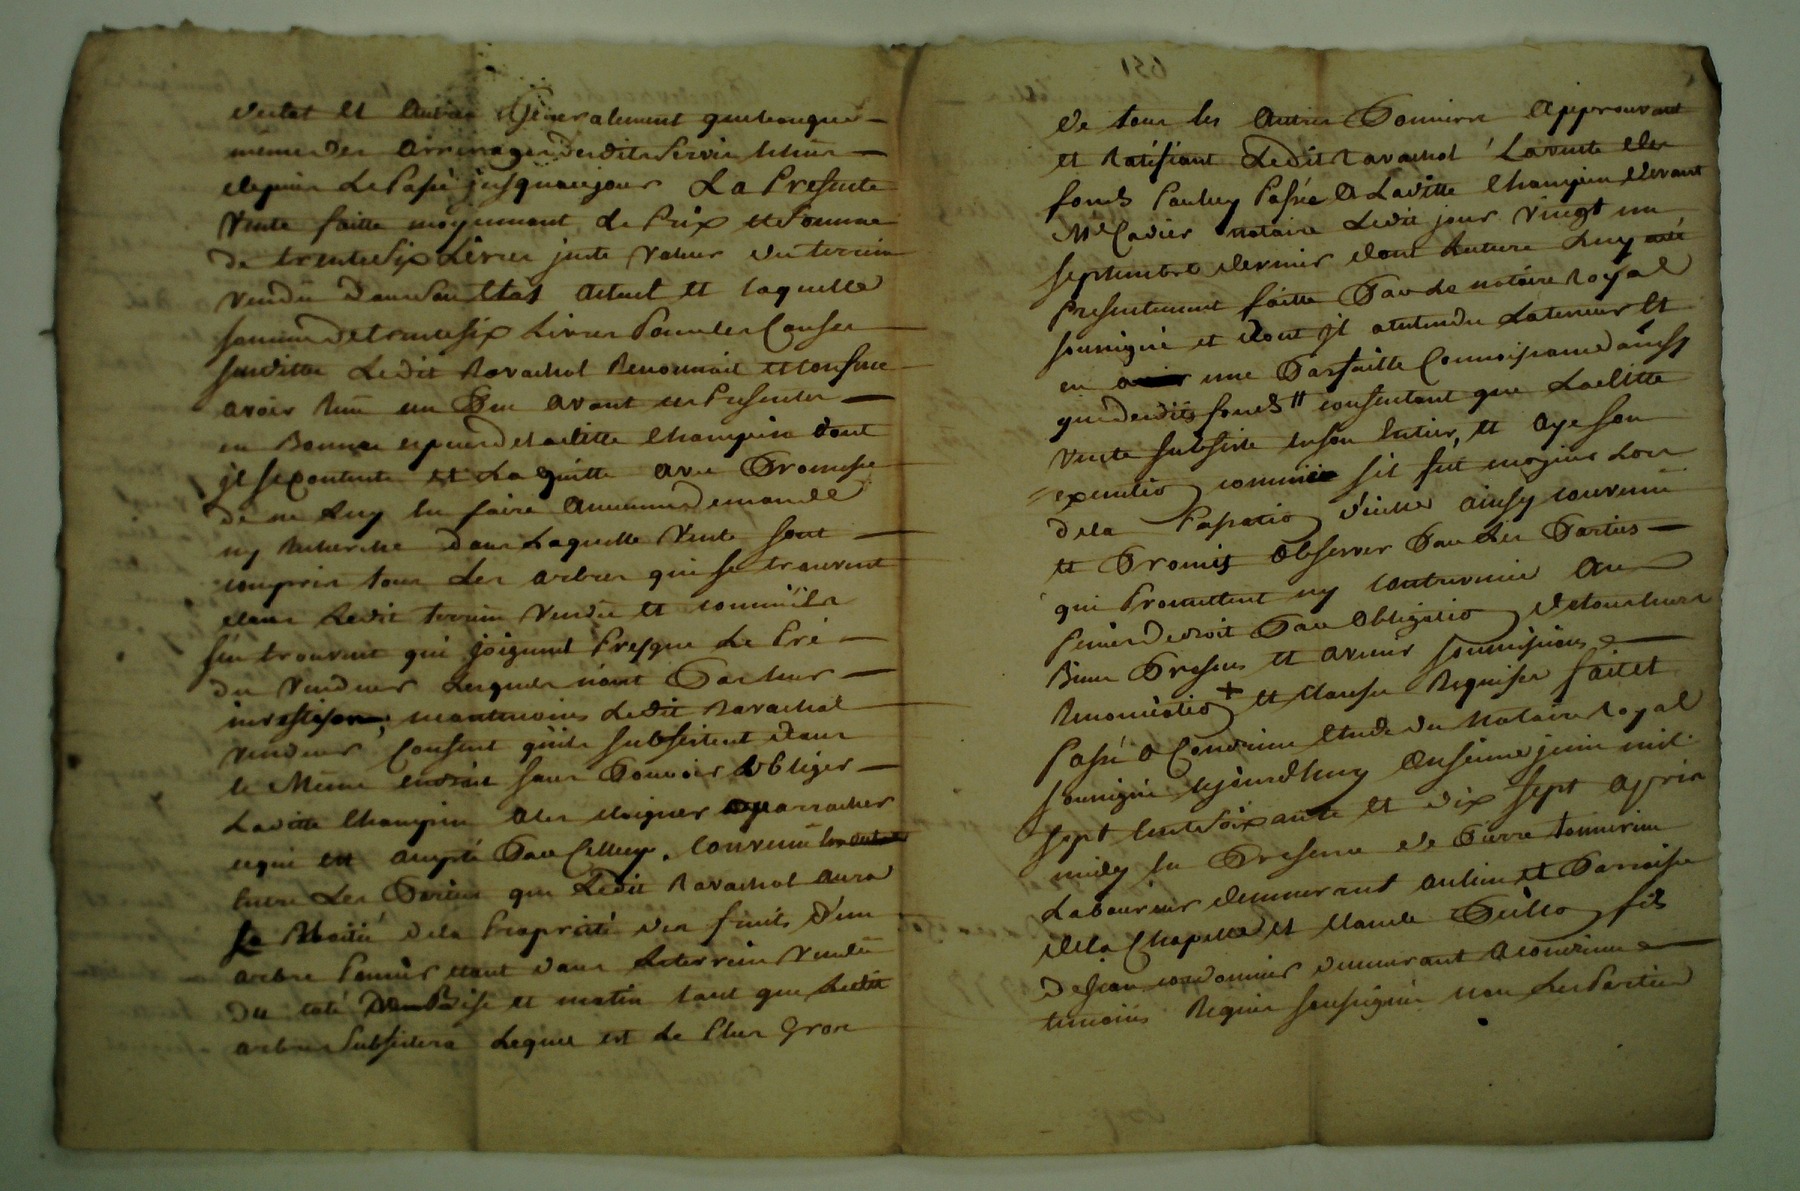 dectet et autres Generalement quelconques
meme des arrerages desdits servis echus
depuis Le Passé jusquaujour La Presente
Vente faitte moyennant Le Prix et somme
de trente six Livres juste valeur du terrein
vendu dans son Etat actuel et laquelle
somme de trente six Livres Pour les Causes
susdittes Ledit Ravachol Reconnoit et confesse
avoir Reçu un Peu avant ces Presentes
en Bonnes especes de laditte Champin dont
jl se contente et La quitte avec Promesse
de ne Luy en faire aucunes demande
ny Recherche dans Laquelle Vente sont
compris tous Les arbres qui se trouvent
dans Ledit terrein Vendu et comm'ils
s'en trouvent qui joignent Presque Le Pré
du Vendeur Lesquels n'ont Pas leur
neantmoins Ledit Ravachol
Vendeur Consent qu'ils subsistent dans
le Meme endroit sans Pouvoir obliger
Laditte Champin a les eloigner ny arracher
ce qui est accepté Par Celluy. Convenu
Entre Les Parties que Ledit Ravachol aura
la Moitié de la Propriété des fruits d'un
arbre Pomier etant dans Le terrein Vendu
du coté De Bise et matin tant que Ledit
arbre Subsistera Lequel est le Plus Gros
de tous les autres Pomiers Approuvant
et Ratifiant Ledit Ravachol La vente des
fonds Par luy Passée a Laditte Champin devant
Me Cavier notaire Ledit jour vingt un
septembre dernier dont Lecture Luy a été
Presentement faitte Par Le notaire Royal
soussigné et dont jl a entendu La teneur Et
en avoir une Parfaitte Connoissance ainsy
que desdits fonds consentant que Laditte
vente subsiste en son Entier, et aye son
execution comme s'il fut majeur Lors
de la Passation d'icelle ainsy convenu
et Promis observer Par Les Parties
qui Promettent ny contrevenir aux
Peines de droit Par obligation de tous leurs
Biens Presens et avenir soumissions
Renonciation + et clauses Requises fait et
Passé a Condrieu Etude du Notaire Royal
soussigné cejourdhuy onsieme juin mil
sept cent soixante et dix sept apres
midy En Presence de Pierre
Laboureur demeurant au lieu et Parroisse
de la Chapelle et Claude fils
de Jean cordonnier demeurant a Condrieu
temoins Requis soussignés non Les Parties